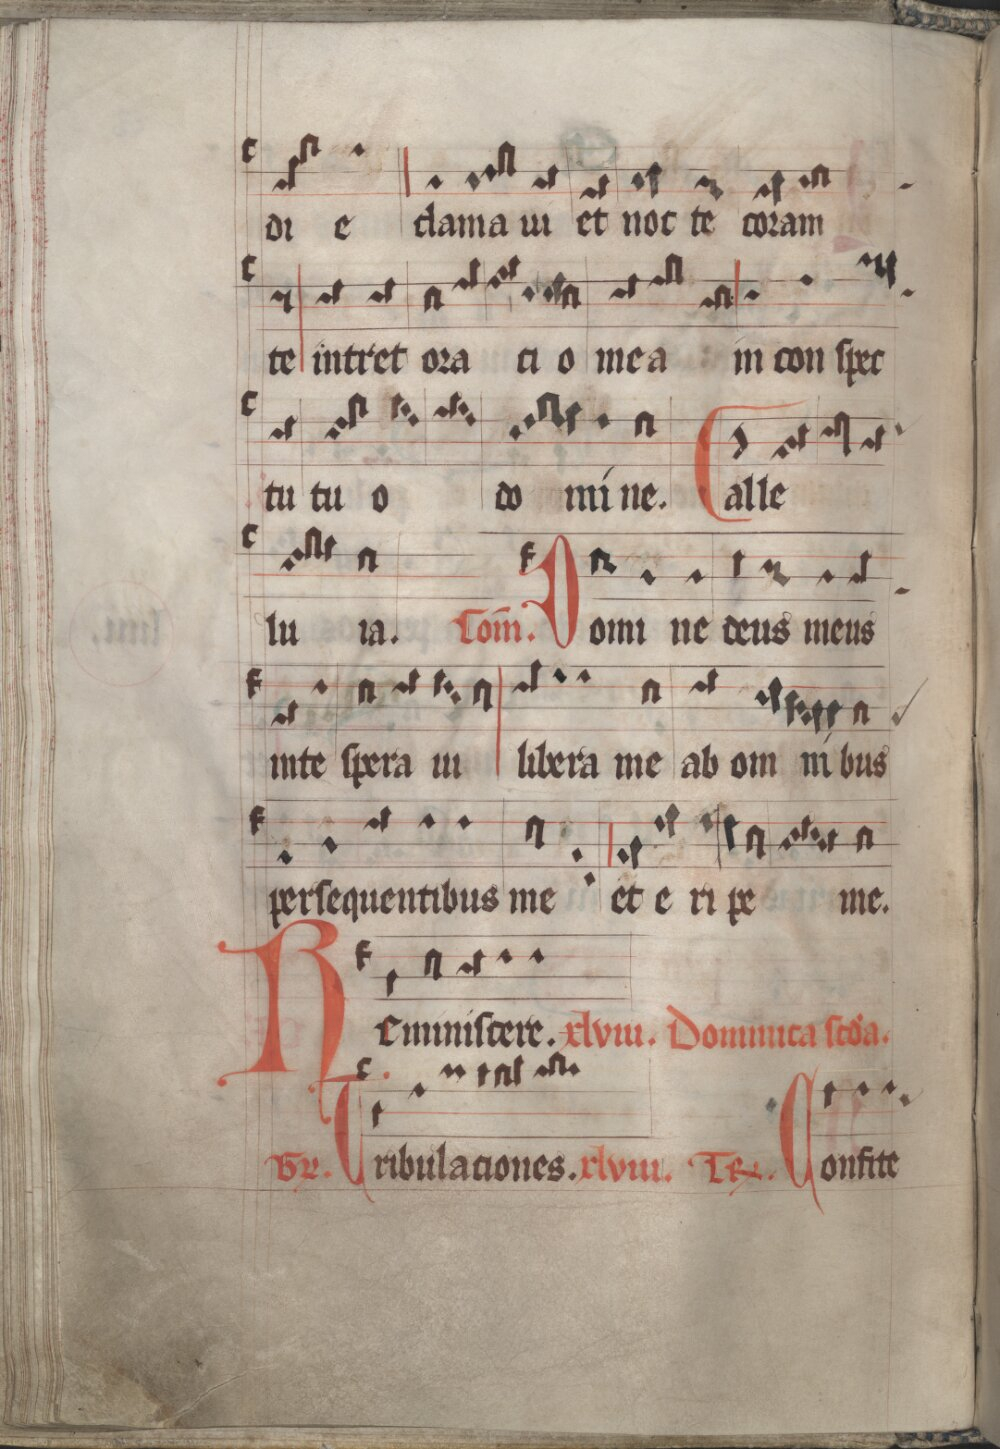 di e clama ui et noc te coram
te intret ora ti o mea in con spec
tu tu o do mi ne. Calle
lu ia. Com̄. Domi ne deus meus
inte spera ui libera me ab om ni bus
persequentibus me et e ri pe me.
Reminiscere. xlviii. Dominica scd'a.
Gr. Tribulationes. xlviii. Tr. Confite